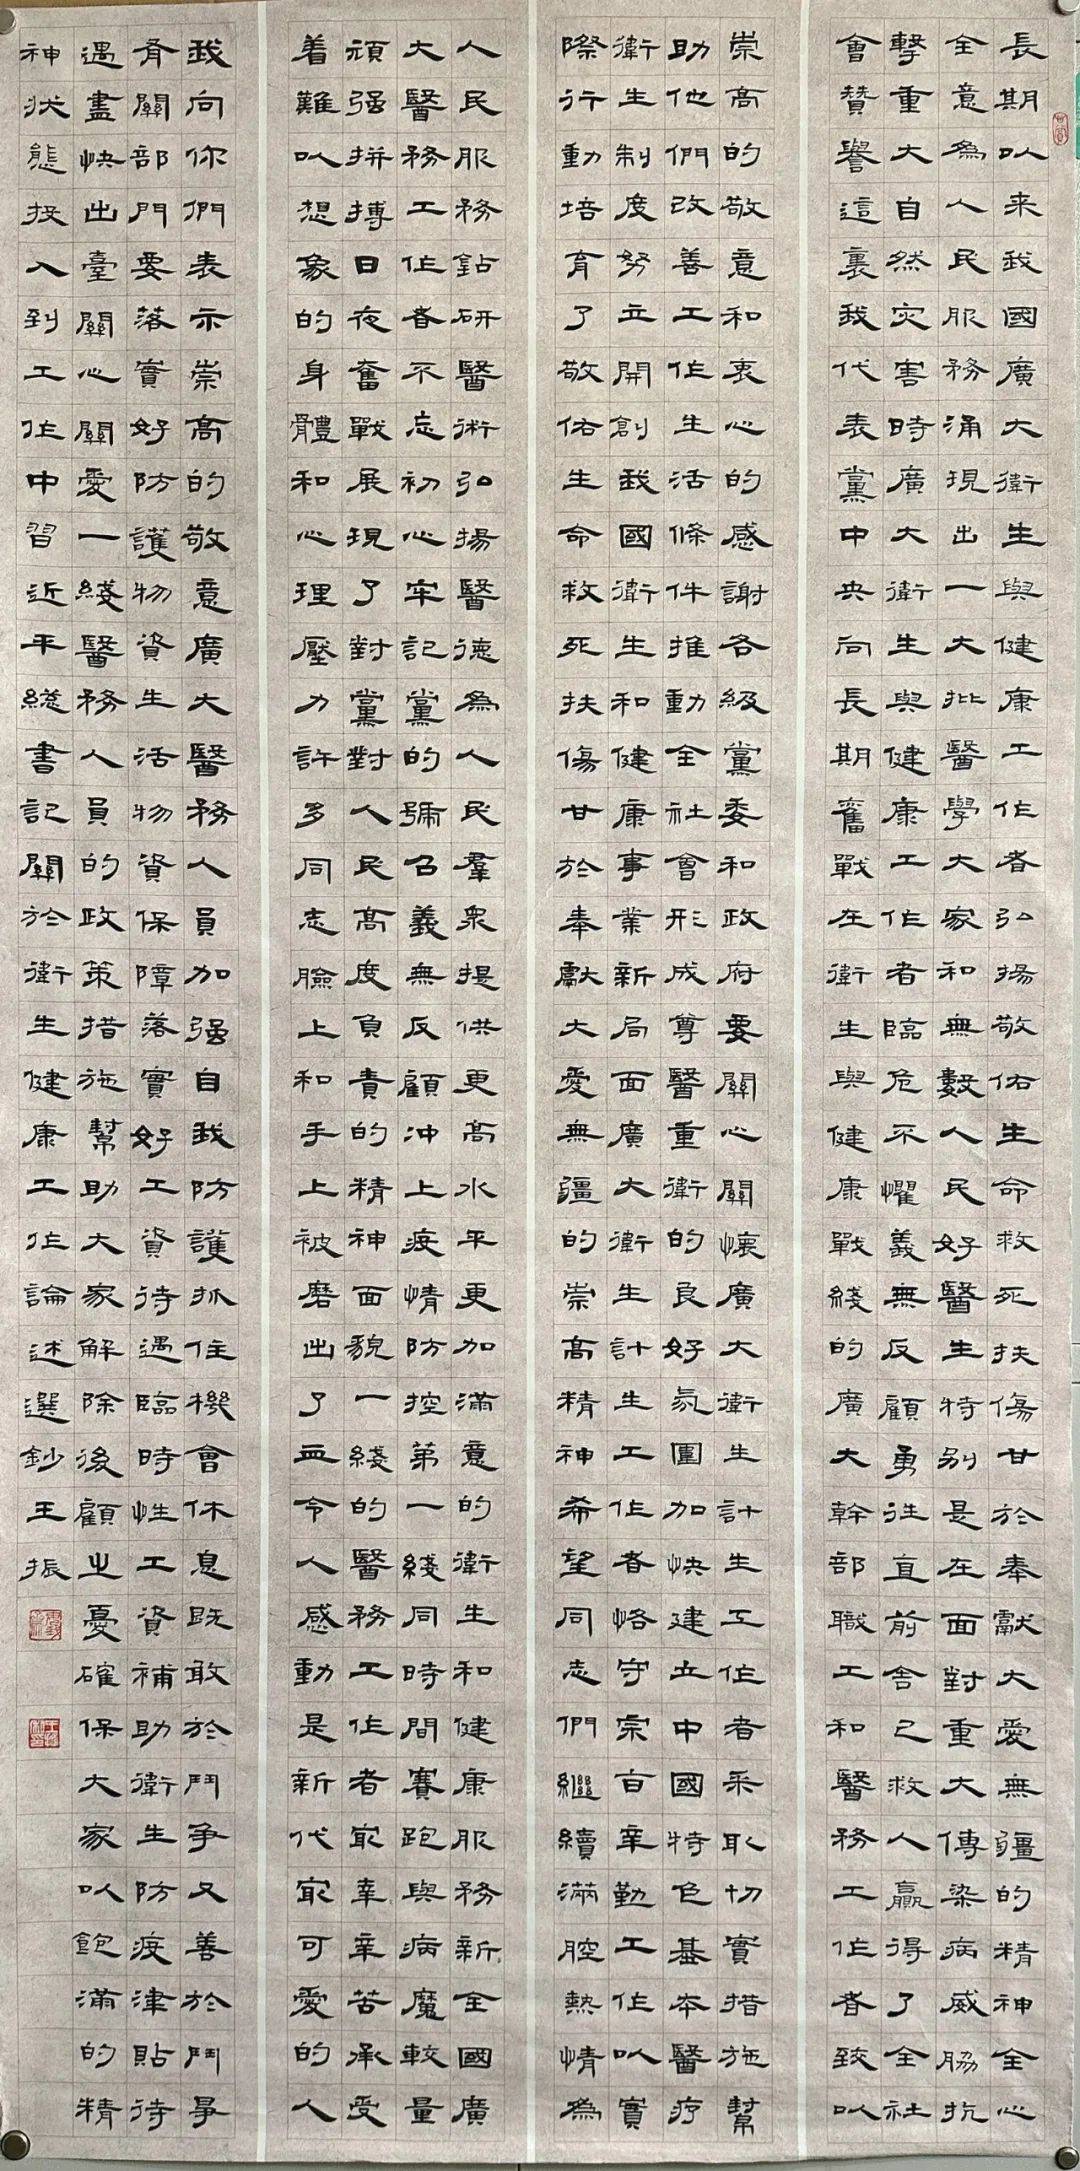 長期以来我國廣大衛生與健康工作者弘揚敬佑生命救死扶傷甘於奉獻大愛無疆的精神全心
全意為人民服務涌現出一大批醫學大家和無數人民好醫生特别是在面對重大傳染病威脇抗
擊重大自然灾害時廣大衛生與健康工作者臨危不懼義無反顧勇往直前舍己救人贏得了全社
會贊譽這裏我代表黨中央向長期奮戰在衛生與健康戰綫的廣大幹部職工和醫務工作者致以
崇高的敬意和衷心的感謝各級黨委和政府要關心關懷廣大衛生計生工作者采取切實措施幫
助他們改善工作生活條件推動全社會形成尊醫重衛的良好氛圍加快建立中國特色基本醫疗
衛生制度努立開創我國衛生和健康事業新局面廣大衛生計生工作者恪守宗旨辛勤工作以實
際行動培育了敬佑生命救死扶傷甘於奉獻大愛無疆的崇高精神希望同志們繼續滿腔熱情為
人民服務鉆研醫術弘揚醫德為人民羣衆提供更高水平更加滿意的衛生和健康服務新全國廣
大醫務工作者不忘初心牢記黨的號召義無反顧冲上疫情防控第一綫同時間賽跑與病魔較量
頑强拼搏日夜奮戰展現了對黨對人民高度負責的精神面貌一綫的醫務工作者最幸辛苦承受
着難以想象的身體和心理壓力許多同志臉上和手上被磨出了血令人感動是新代最可愛的人
我向你們表示崇高的敬意廣大醫務人員加强自我防護抓住機會休息既敢於鬥争又善於鬥争
有關部門要落實好防護物資生活物資保障落實好工資待遇臨時性工資補助衛生防疫津貼待
遇盡快出臺關心關愛一綫醫務人員的政策措施幫助大家解除後顧之憂確保大家以飽滿的精
神狀態投入到工作中習近平總書記關於衛生健康工作論述選鈔王振